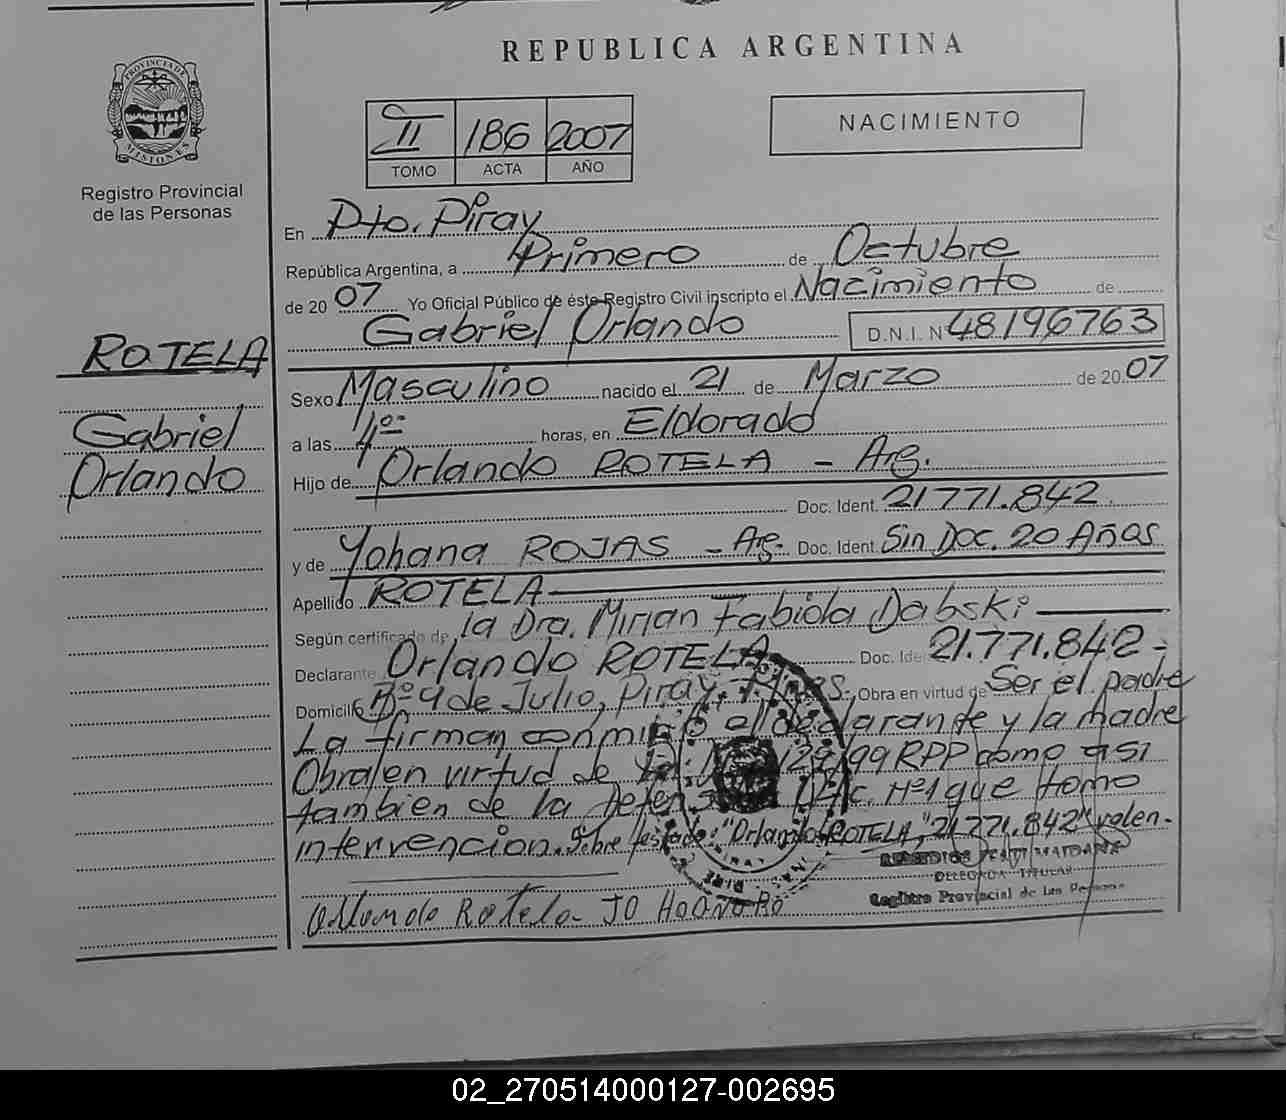 REPUBLICA ARGENTINA
PROVINCIA DE MISIONES
Registro Provincial
de las Personas
II 186 2007
TOMO ACTA AÑO
NACIMIENTO
En Pto. Piray
República Argentina, a Primero de Octubre
de 20 07 Yo Oficial Público de éste Registro Civil inscripto el Nacimiento de
Gabriel Orlando D.N.I. Nº 48196763
ROTELA
Gabriel
Orlando
Sexo Masculino nacido el 21 de Marzo de 20 07
a las horas, en Eldorado
Hijo de Orlando ROTELA - Arg.
Doc. Ident. 21771.842
y de Yohana ROJAS - Arg. Doc. Ident. Sin Doc. 20 Años
Apellido ROTELA
Según certificado de la Dra. Mirian Fabiola Dabski
Declarante Orlando ROTELA Doc. Ide 21.771.842 -
Domicilio Bº 9 de Julio, Piray, Obra en virtud de Ser el padre
La firman conmigo el declarante y la madre
Obra en virtud de 99 RPP como asi
tambien de la Nº1 que tomo
intervencion. Sobre testado: "Orlando ROTELA", "21.771.842" valen.-
DELEGADA TITULAR
Registro Provincial de las Personas
Orlando Rotela
02_270514000127-002695